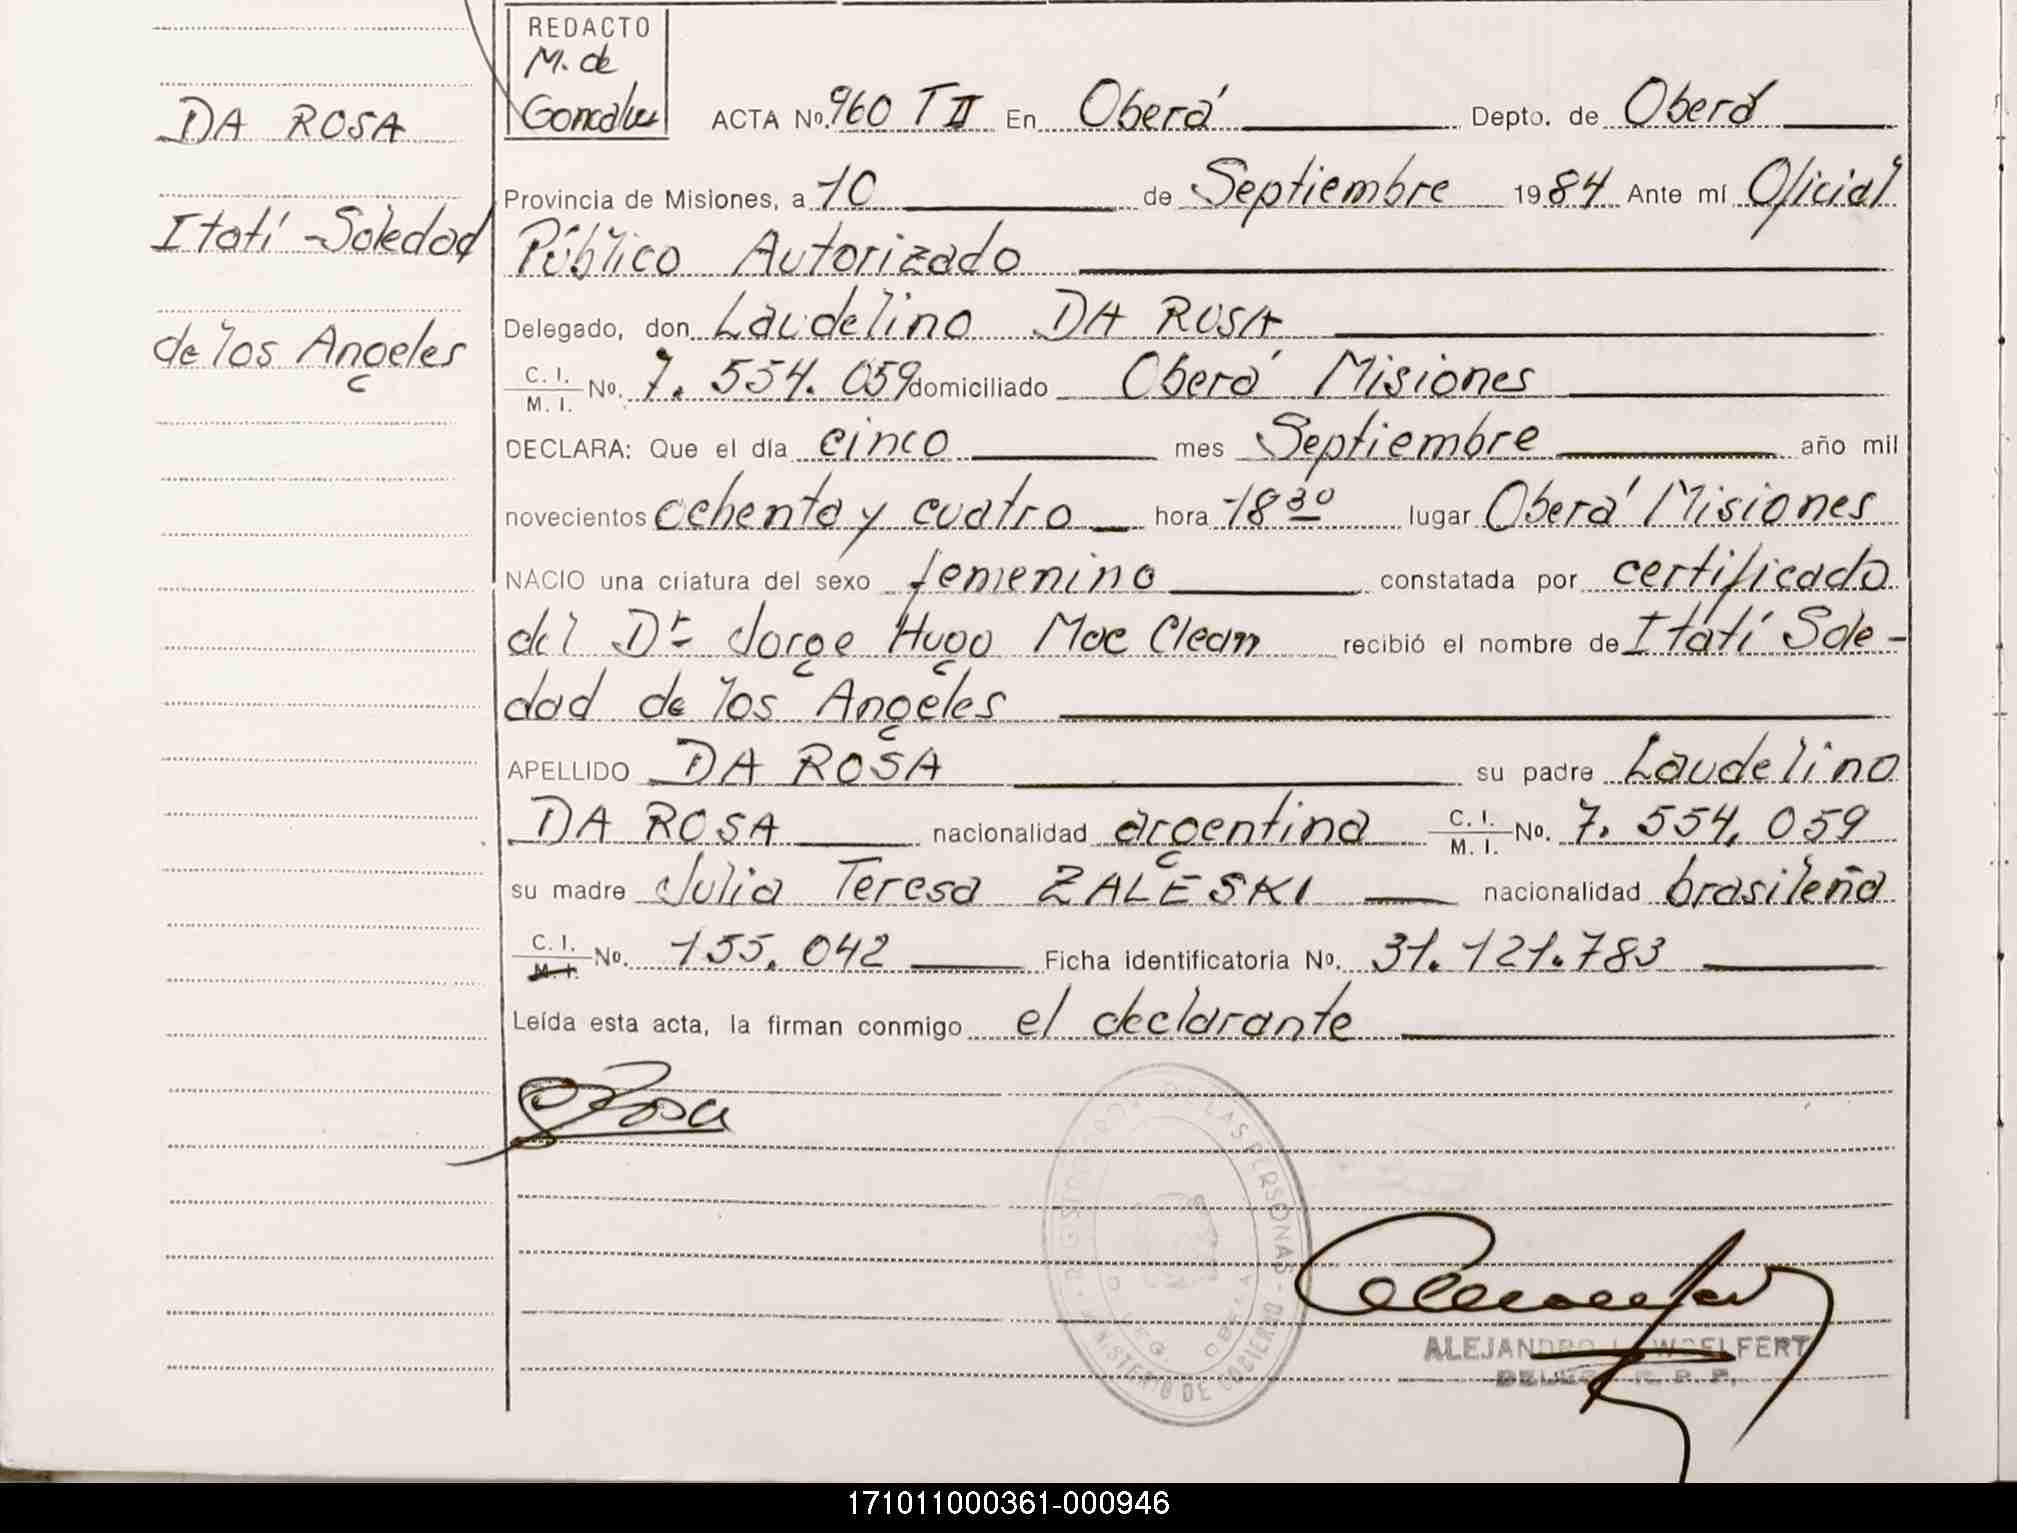 DA ROSA
Itatí Soledad
de los Angeles
REDACTO
M. de
Goncalves
ACTA Nº. 960 T II En Oberá Depto. de Oberá
Provincia de Misiones, a 10 de Septiembre 1984 Ante mí Oficial
Público Autorizado
Delegado, don Laudelino DA ROSA
C. I. M. I. No. 7. 554. 059 domiciliado Oberá Misiones
DECLARA: Que el día cinco mes Septiembre año mil
novecientos ochenta y cuatro hora 18 30 lugar Oberá Misiones
NACIO una criatura del sexo femenino constatada por certificado
del Dr Jorge Hugo Mac Clean recibió el nombre de Itatí Sole-
dad de los Angeles
APELLIDO DA ROSA su padre Laudelino
DA ROSA nacionalidad argentina C. I. M. I. No. 7. 554. 059
su madre Julia Teresa ZALESKI nacionalidad brasileña
C. I. M. I. No. 155. 042 Ficha identificatoria No. 31. 121. 783
Leída esta acta, la firman conmigo el declarante
Rosa
DE LAS PERSONAS
MINISTERIO DE GOBIERNO
ALEJANDRO WOELFERT
171011000361-000946